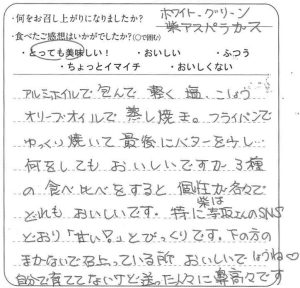 ・何をお召し上がりになりましたか？ ホワイト・グリーン
紫アスパラガス
・食べたご感想はいかがでしたか？(○で囲む)
・とっても美味しい！ ・おいしい ・ふつう
・ちょっとイマイチ ・おいしくない
アルミホイルで包んで 軽く 塩、こしょう
オリーブオイルで 蒸し焼き。フライパンで
ゆっくり焼いて 最後にバターを少し…
何をしても おいしいですが 3種
の 食べ比べをすると 個性が各々で
どれも おいしいです。特に 紫は SNS
どおり「甘い!」とびっくりです。下の方の
まがないで 立っている所 おいしいでしょうね♡
自分で育ててないけど送った人々に鼻高々です